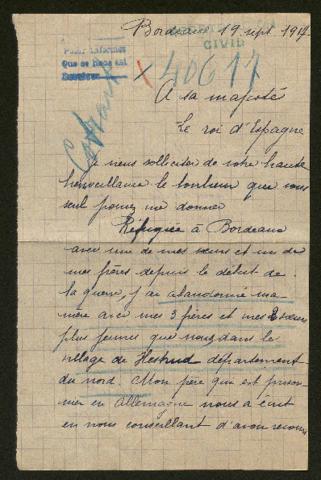 Bordeaux 19 sept. 1917.
CIVIL
Pedir informes
Que se haga así
40611
A sa majesté
Le roi d'Espagne
nous solliciter de votre haute
bienveillance le bonheur que vous
seul pouvez me donner
Réfugiée à Bordeaux
avec une de mes sœurs et un de
mes frères depuis le début de
la guerre, j'ai abandonné ma
mère avec mes 3 frères et mes 2 sœurs
plus jeunes que nous dans le
village de Hestrud département
du nord. Mon père qui est prison
nier en Allemagne nous a écrit
en nous conseillant d'avoir recours